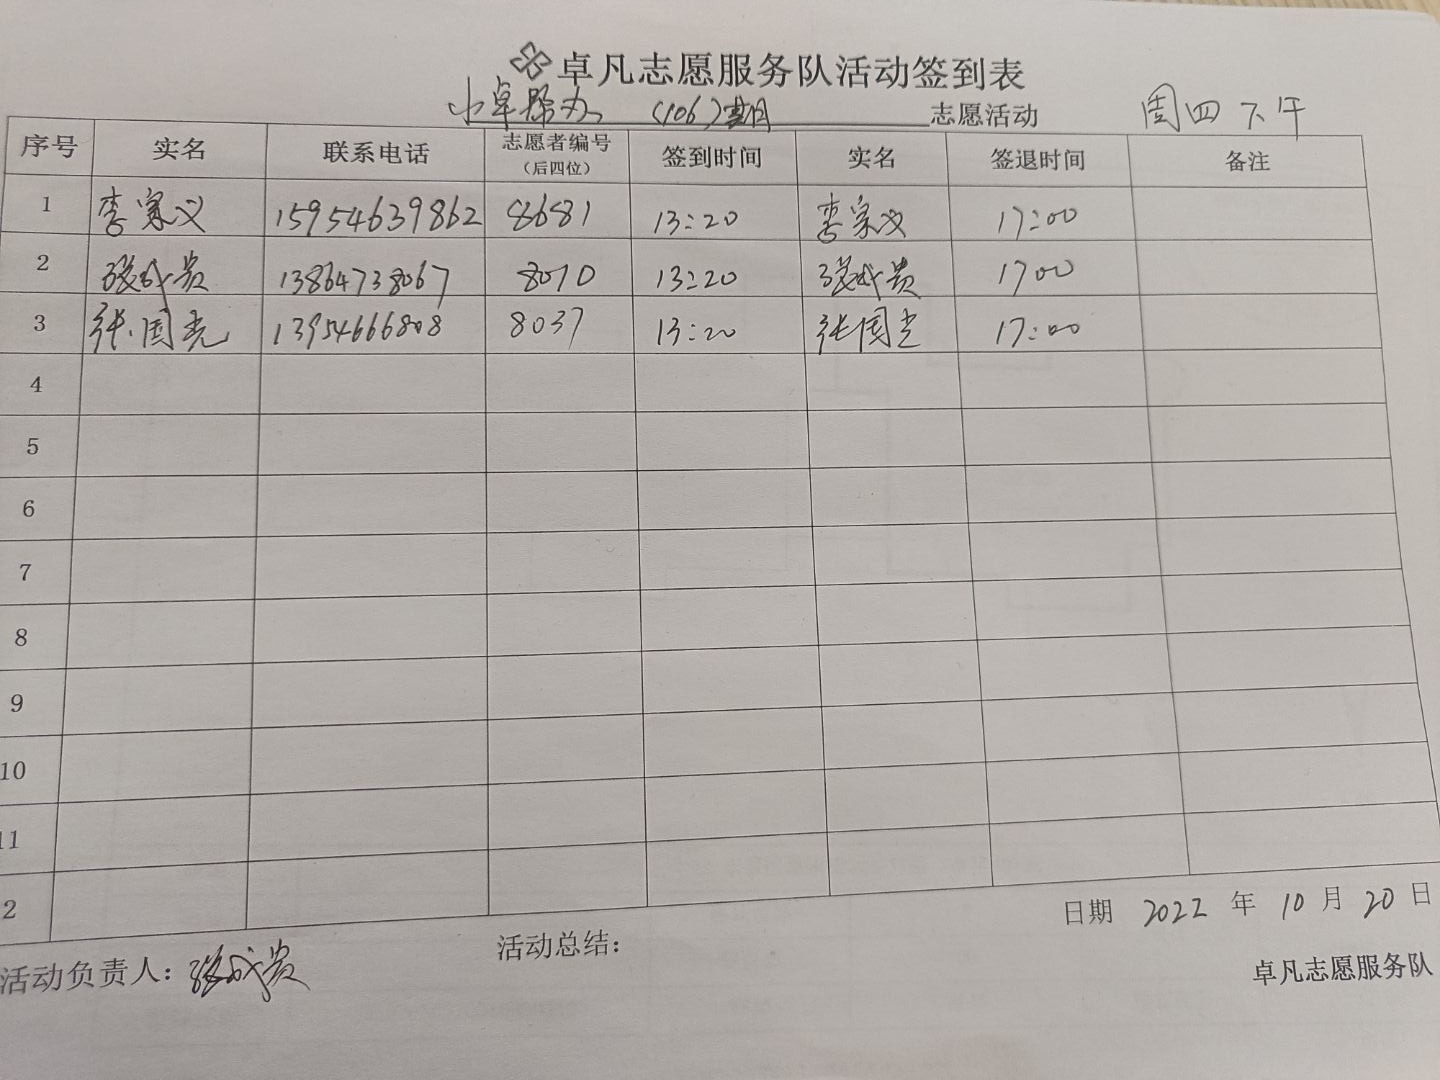 卓凡志愿服务队活动签到表
小卓帮办 (106)期 志愿活动 周四下午
序号 实名 联系电话 志愿者编号（后四位） 签到时间 实名 签退时间 备注
1 李家义 15954639862 8681 13:20 李家义 17:00
2 张成贵 13864738067 8070 13:20 张成贵 1700
3 张国光 13954666808 8037 13:20 张国光 17:00
4
5
6
7
8
9
10
11
2
日期 2022 年 10 月 20 日
活动负责人：张成贵 活动总结：
卓凡志愿服务队